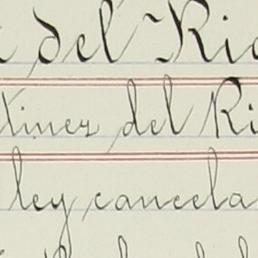 del Ri
tinez del Ri
ley cancela